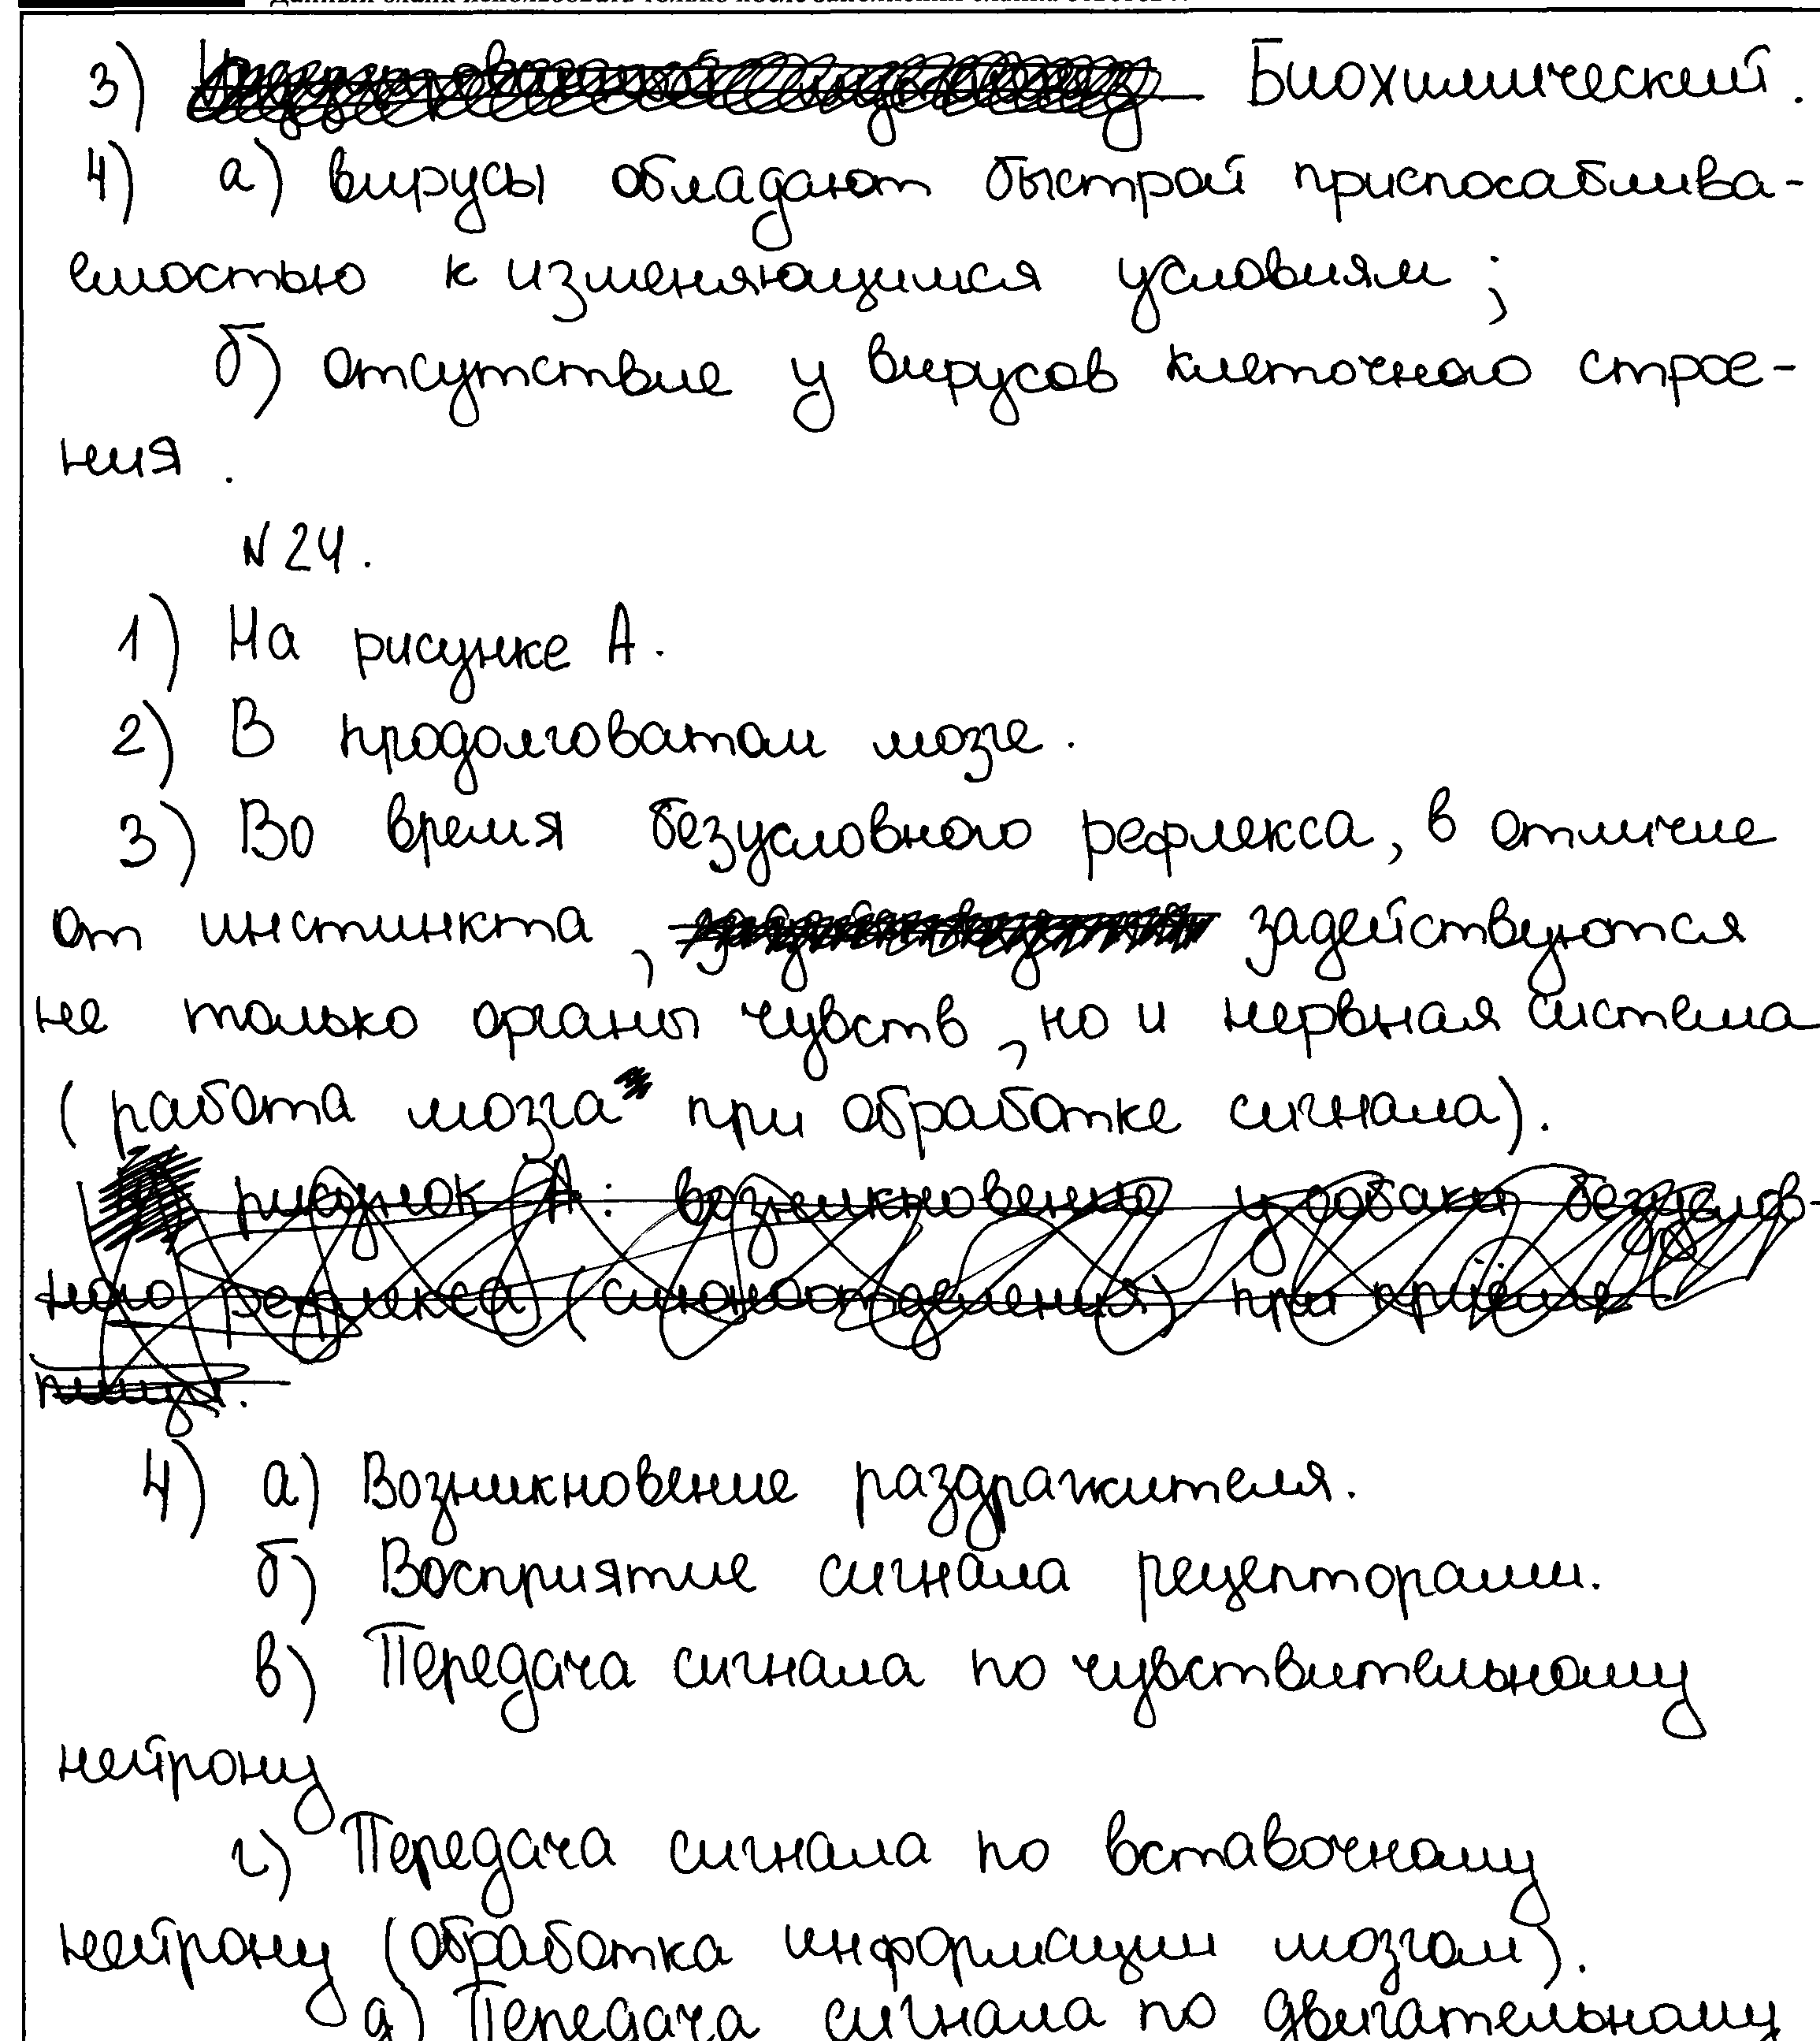 3) Биохимический.
4) а) вирусы обладают быстрой приспосаблива-
емостью к изменяющимся условиям;
б) отсутствие у вирусов клеточного строе-
ния.
N24.
1) На рисунке А.
2) В продолговатом мозге.
3) Во время безусловного рефлекса, в отличие
от инстинкта, задействуются
не только органы чувств, но и нервная система
(работа мозга при обработке сигнала).
рисунок А: возникновение у собаки безуслов-
ного рефлекса (слюноотделения) при приёме
пищи.
4) а) Возникновение раздражителя.
б) Восприятие сигнала рецепторами.
в) Передача сигнала по чувствительному
нейрону
г) Передача сигнала по вставочному
нейрону (обработка информации мозгом).
д) Передача сигнала по двигательному